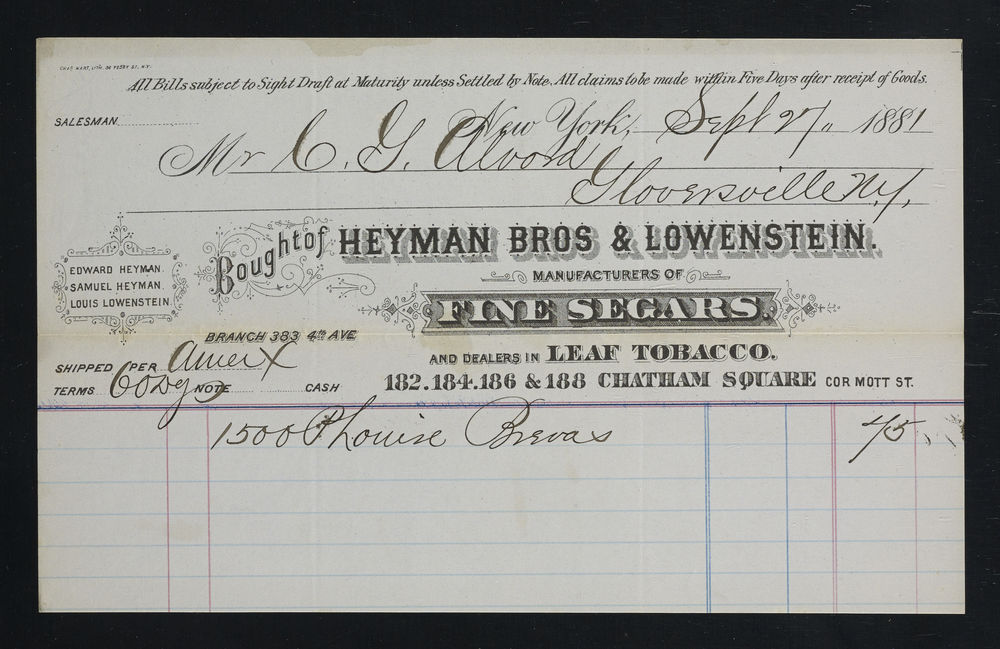 CHAS HART, LITH. 36 VESEY ST. N.Y.
All Bills subject to Sight Draft at Maturity unless Settled by Note. All claims to be made within Five Days after receipt of Goods.
SALESMAN
New York, Sept 27/" 1881
Mr C. G. Alvord
Gloversville N.Y.
Bought of HEYMAN BROS & LOWENSTEIN.
EDWARD HEYMAN.
SAMUEL HEYMAN.
LOUIS LOWENSTEIN.
MANUFACTURERS OF
FINE SEGARS.
BRANCH 383 4th AVE
AND DEALERS IN LEAF TOBACCO.
SHIPPED PER Amer X
TERMS 60 Dys NOTE CASH
182.184.186 & 188 CHATHAM SQUARE COR MOTT ST.
1500 Louise Brevas 45